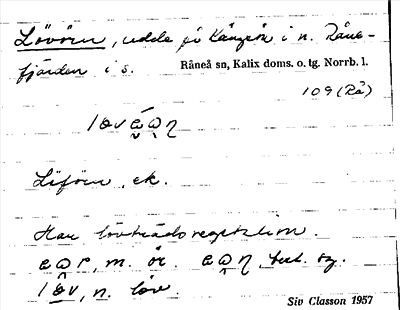 Lövörn, udde på Rånön i n. Råne-
fjärden i s. Råneå sn, Kalix doms. o. tg. Norrb. l.
109 (Rå)
Liförn, ek.
Har lövträdsvegetation.
m. ör. best. sg.
n. löv.
Siv Classon 1957